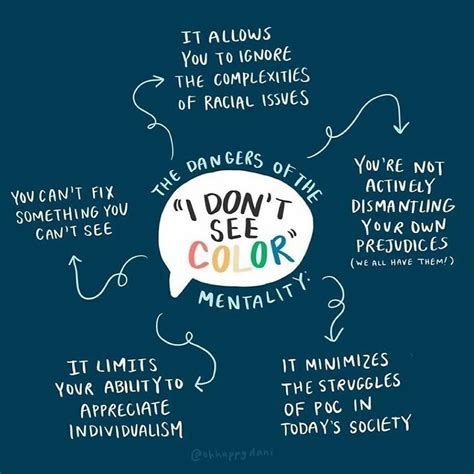 IT ALLOWS
YOU TO IGNORE
THE COMPLEXITIES
OF RACIAL ISSUES
THE DANGERS OF THE
"I DON'T
SEE
COLOR"
MENTALITY:
YOU'RE NOT
ACTIVELY
DISMANTLING
YOUR OWN
PREJUDICES
(WE ALL HAVE THEM!)
IT MINIMIZES
THE STRUGGLES
OF POC IN
TODAY'S SOCIETY
IT LIMITS
YOUR ABILITY TO
APPRECIATE
INDIVIDUALISM
YOU CAN'T FIX
SOMETHING YOU
CAN'T SEE
@ohhappydani